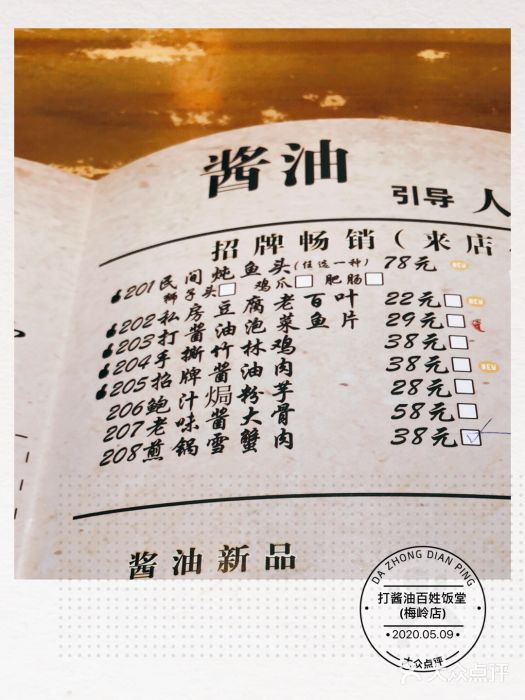 酱油
引导 人
招牌畅销(来店
201民间炖鱼头(任选一种) 78元 NEW
狮子头 鸡爪 肥肠
202私房豆腐老百叶 22元 NEW
203打酱油泡菜鱼片 29元
204手撕竹林鸡 38元
205招牌酱油肉 38元 NEW
206鲍汁焗粉芋 28元
207老味酱大骨 58元
208煎锅雪蟹肉 38元
酱油新品
DA ZHONG DIAN PING
打酱油百姓饭堂
(梅岭店)
2020.05.09
大众点评
大众点评